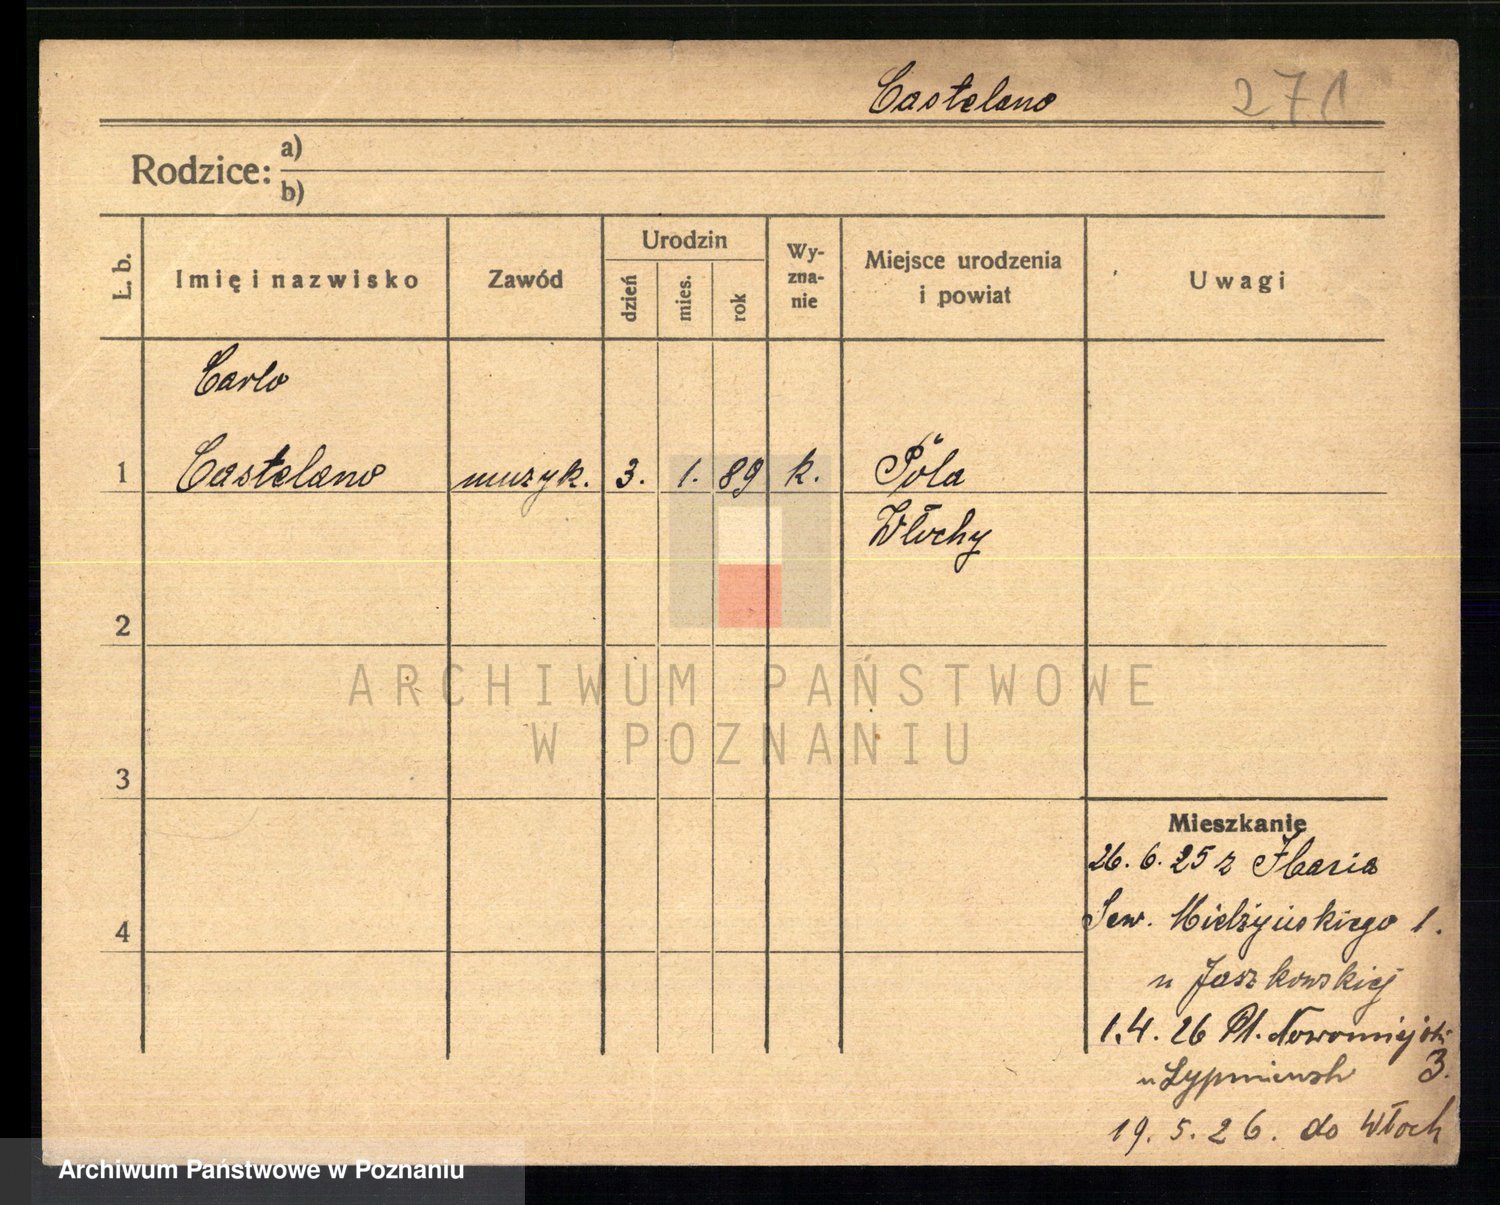 Castelano 271
Rodzice: a)
b)
L. b.
Imię i nazwisko
Zawód
Urodzin
dzień
mies.
rok
Wy-
zna-
nie
Miejsce urodzenia
i powiat
Uwagi
Carlo
1 Castelano muzyk. 3. 1. 89 k. Pola
Włochy
2
3
4
ARCHIWUM PAŃSTWOWE
W POZNANIU
Mieszkanie
26. 6. 25 z
Sew. Mielżyńskiego 1.
u Jaszkowskiej
1. 4. 26 Pl. Nowomiejski
u 3.
19. 5. 26. do Włoch
Archiwum Państwowe w Poznaniu